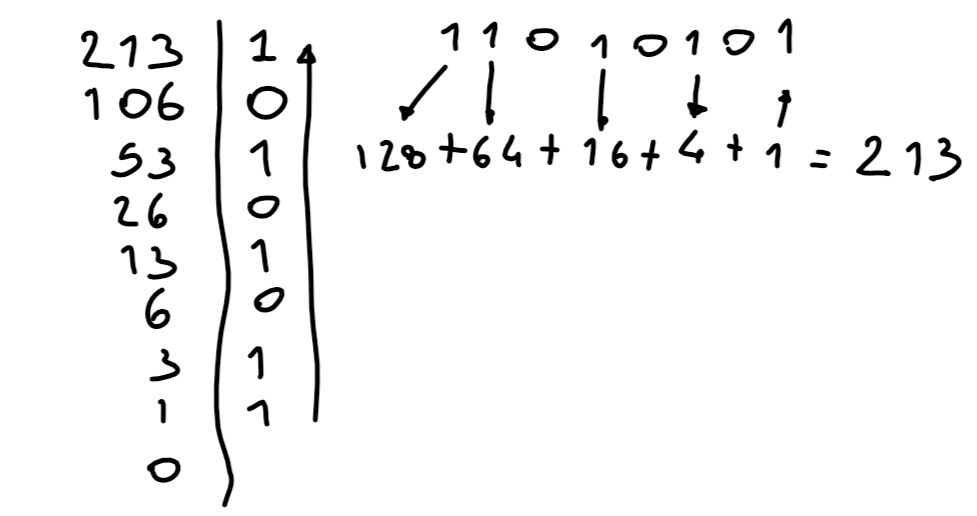 213 | 1
106 | 0
53 | 1
26 | 0
13 | 1
6 | 0
3 | 1
1 | 1
0
1 1 0 1 0 1 0 1
128 + 64 + 16 + 4 + 1 = 213